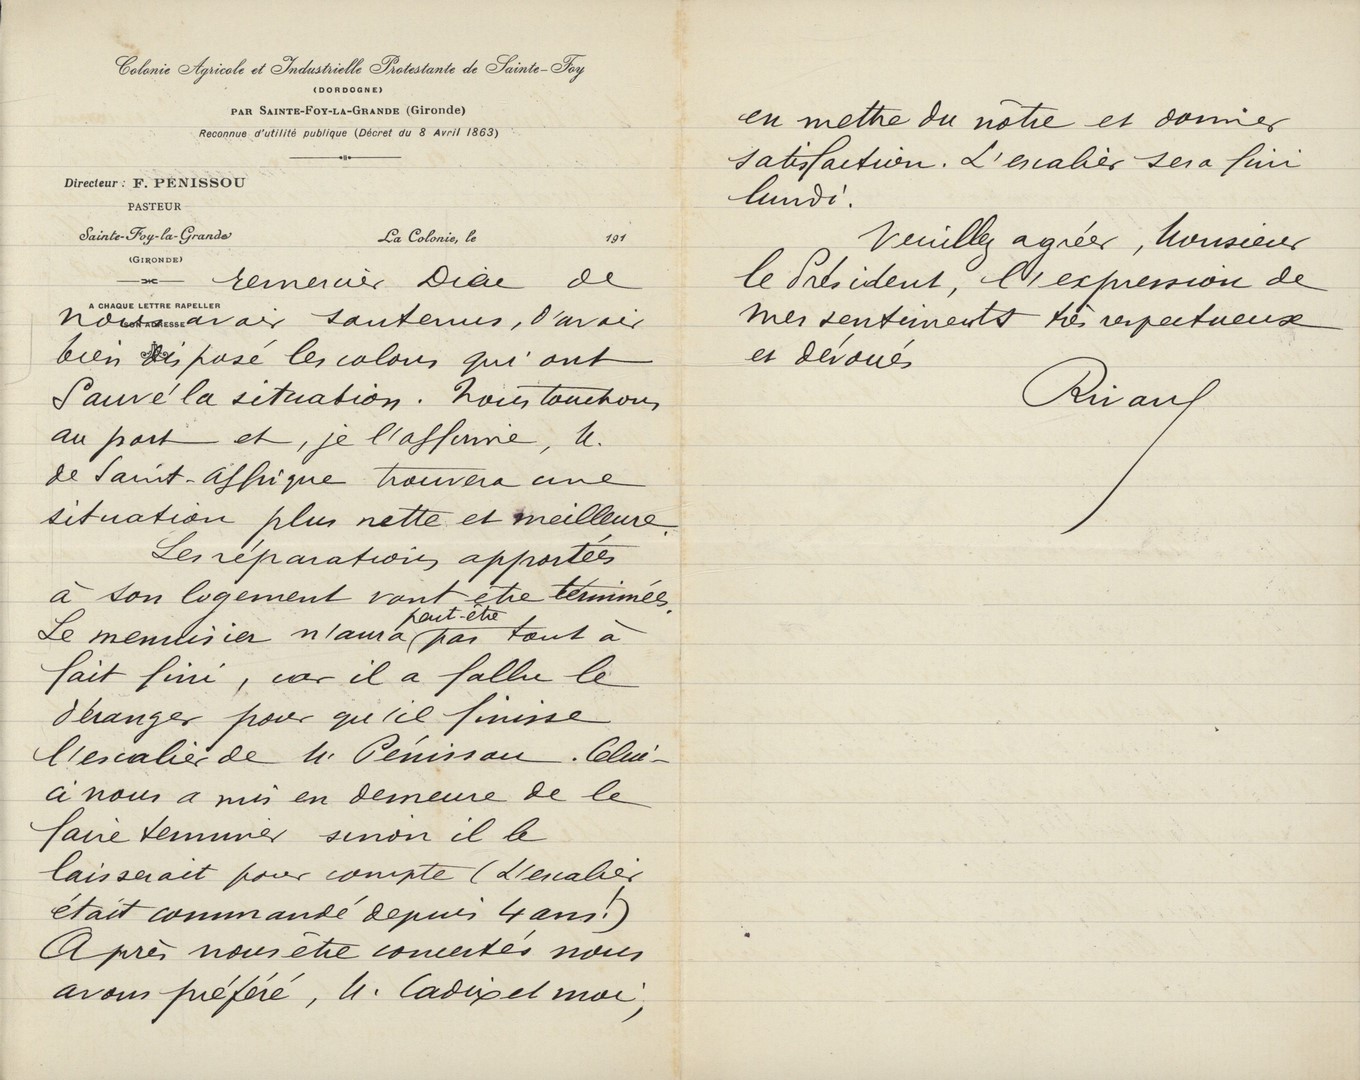 Colonie Agricole et Industrielle Protestante de Sainte-Foy
(DORDOGNE)
PAR SAINTE-FOY-LA-GRANDE (Gironde)
Reconnue d'utilité publique (Décret du 8 Avril 1863)
Directeur : F. PÉNISSOU
PASTEUR
Sainte-Foy-la-Grande
(GIRONDE)
La Colonie, le 191
A CHAQUE LETTRE RAPPELER
SON ADRESSE
remercier Dieu de
nous avoir soutenus, d'avoir
bien disposé les colons qui ont
sauvé la situation. Nous touchons
au port et, je l'affirme, M.
de Saint-Affrique trouvera une
situation plus nette et meilleure.
Les réparations apportées
à son logement vont être terminées.
Le menuisier n'aura peut-être pas tout à
fait fini, car il a fallu le
déranger pour qu'il finisse
l'escalier de M. Pénissou. Celui-
ci nous a mis en demeure de le
faire terminer sinon il le
laisserait pour compte (L'escalier
était commandé depuis 4 ans!)
Après nous être concertés nous
avons préféré, M. Cadix et moi,
en mettre du nôtre et donner
satisfaction. L'escalier sera fini
lundi.
Veuillez agréer, Monsieur
le Président, l'expression de
mes sentiments très respectueux
et dévoués